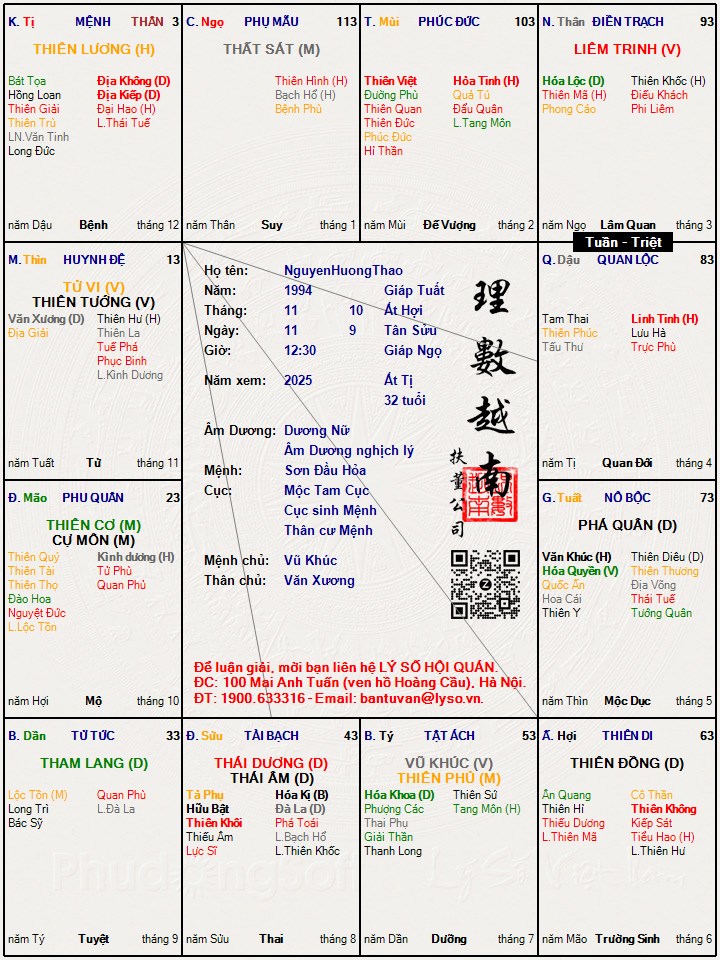 K. Tị MỆNH THÂN 3
THIÊN LƯƠNG (H)
Bát Tọa Địa Không (D)
Hồng Loan Địa Kiếp (D)
Thiên Giải Đại Hao (H)
Thiên Trù L.Thái Tuế
LN.Văn Tinh
Long Đức
năm Dậu Bệnh tháng 12
C. Ngọ PHỤ MẪU 113
THẤT SÁT (M)
Thiên Hình (H)
Bạch Hổ (H)
Bệnh Phù
năm Thân Suy tháng 1
T. Mùi PHÚC ĐỨC 103
Thiên Việt Hỏa Tinh (H)
Đường Phù Quả Tú
Thiên Quan Đẩu Quân
Thiên Đức L.Tang Môn
Phúc Đức
Hỉ Thần
năm Mùi Đế Vượng tháng 2
N. Thân ĐIỀN TRẠCH 93
LIÊM TRINH (V)
Hóa Lộc (D) Thiên Khốc (H)
Thiên Mã (H) Điếu Khách
Phong Cáo Phi Liêm
năm Ngọ Lâm Quan tháng 3
Tuần - Triệt
M. Thìn HUYNH ĐỆ 13
TỬ VI (V)
THIÊN TƯỚNG (V)
Văn Xương (D) Thiên Hư (H)
Địa Giải Thiên La
Tuế Phá
Phục Binh
L.Kình Dương
năm Tuất Tử tháng 11
Họ tên: NguyenHuongThao
Năm: 1994 Giáp Tuất
Tháng: 11 10 Ất Hợi
Ngày: 11 9 Tân Sửu
Giờ: 12:30 Giáp Ngọ
Năm xem: 2025 Ất Tị
32 tuổi
Âm Dương: Dương Nữ
Âm Dương nghịch lý
Mệnh: Sơn Đầu Hỏa
Cục: Mộc Tam Cục
Cục sinh Mệnh
Thân cư Mệnh
Mệnh chủ: Vũ Khúc
Thân chủ: Văn Xương
理數越南
扶董公司
Để luận giải, mời bạn liên hệ LÝ SỐ HỘI QUÁN.
ĐC: 100 Mai Anh Tuấn (ven hồ Hoàng Cầu), Hà Nội.
ĐT: 1900.633316 - Email: bantuvan@lyso.vn.
Q. Dậu QUAN LỘC 83
Tam Thai Linh Tinh (H)
Thiên Phúc Lưu Hà
Tấu Thư Trực Phù
năm Tị Quan Đới tháng 4
Đ. Mão PHU QUÂN 23
THIÊN CƠ (M)
CỰ MÔN (M)
Thiên Quý Kình dương (H)
Thiên Tài Tử Phù
Thiên Thọ Quan Phủ
Đào Hoa
Nguyệt Đức
L.Lộc Tồn
năm Hợi Mộ tháng 10
G. Tuất NÔ BỘC 73
PHÁ QUÂN (D)
Văn Khúc (H) Thiên Diêu (D)
Hóa Quyền (V) Thiên Thương
Quốc Ấn Địa Võng
Hoa Cái Thái Tuế
Thiên Y Tướng Quân
năm Thìn Mộc Dục tháng 5
B. Dần TỬ TỨC 33
THAM LANG (D)
Lộc Tồn (M) Quan Phù
Long Trì L.Đà La
Bác Sỹ
năm Tý Tuyệt tháng 9
Đ. Sửu TÀI BẠCH 43
THÁI DƯƠNG (D)
THÁI ÂM (D)
Tả Phụ Hóa Kị (B)
Hữu Bật Đà La (D)
Thiên Khôi Phá Toái
Thiếu Âm L.Bạch Hổ
Lực Sĩ L.Thiên Khốc
năm Sửu Thai tháng 8
B. Tý TẬT ÁCH 53
VŨ KHÚC (V)
THIÊN PHỦ (M)
Hóa Khoa (D) Thiên Sứ
Phượng Các Tang Môn (H)
Thai Phụ
Giải Thần
Thanh Long
năm Dần Dưỡng tháng 7
Ấ. Hợi THIÊN DI 63
THIÊN ĐỒNG (D)
Ân Quang Cô Thần
Thiên Hỉ Thiên Không
Thiếu Dương Kiếp Sát
L.Thiên Mã Tiểu Hao (H)
L.Thiên Hư
năm Mão Trường Sinh tháng 6